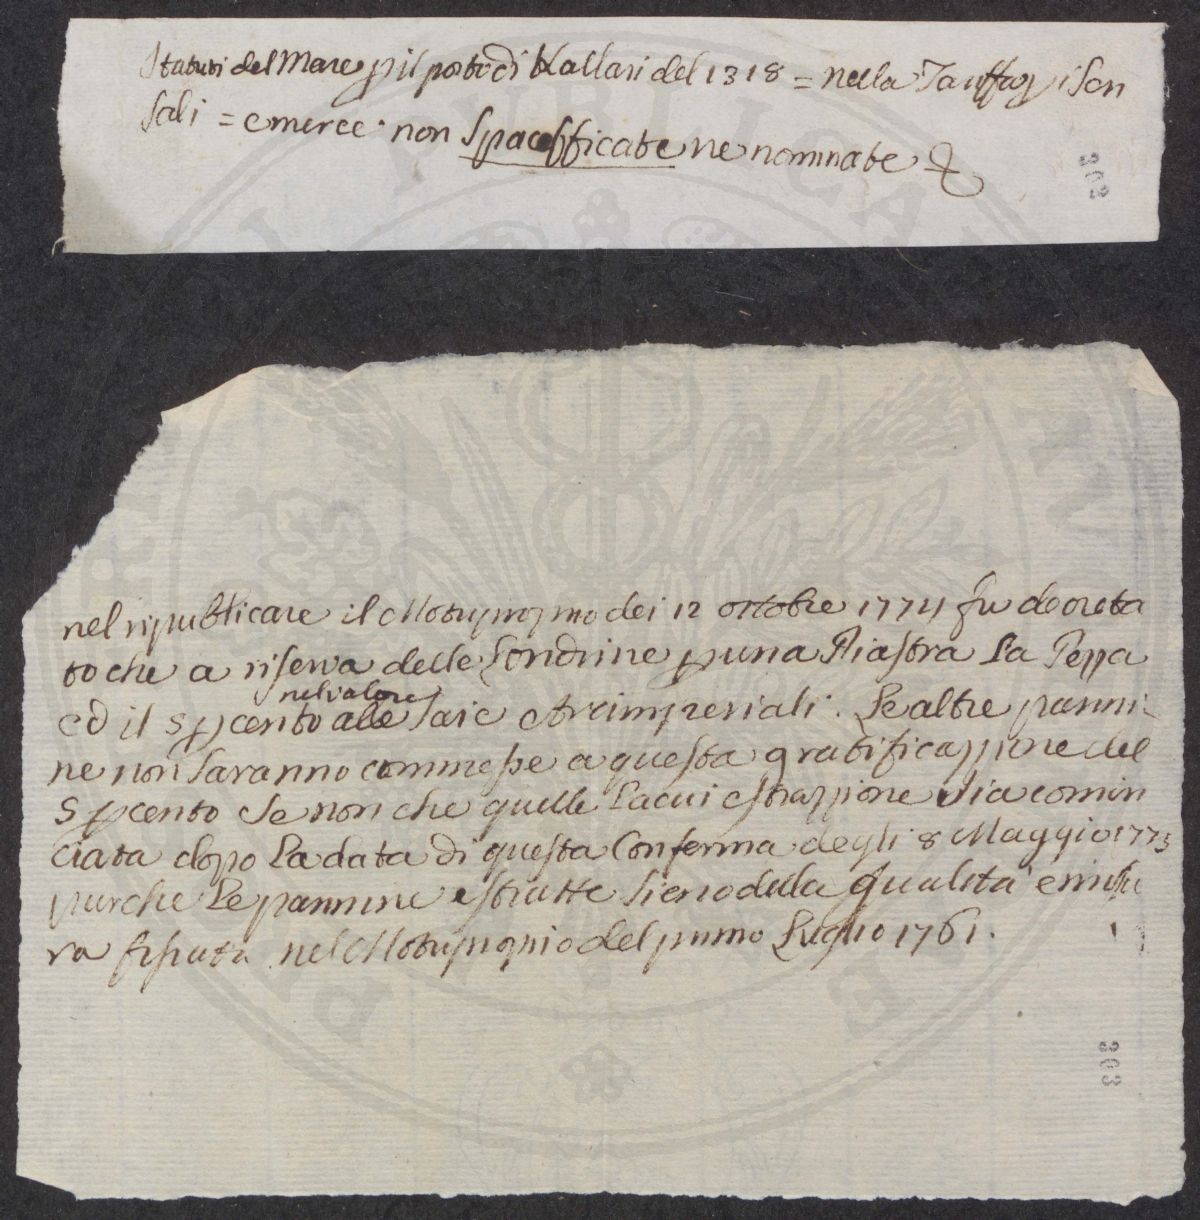 Statuti del Mare p il porto di Kallari del 1318 = nella Tariffa p i Sen
sali = e merce non spacefficate ne nominate &
302
nel ripubblicare il Motuproprio dei 12 ottobre 1774 fu decreta
to che a riserva delle Londrine p una Piastra La Pezza
ed il 5 p cento alle Saie etreimperiali. Le altre panni
nel valore
ne non Saranno commesse a questa gratificazzione del
5 p cento Se non che quelle La cui estrazzione Sia comin
ciata dopo La data di questa Conferma degli 8 Maggio 1775
purche Le pannine estratte Sieno della qualità e misu
ra fissata nel Motuproprio del primo Luglio 1761.
303